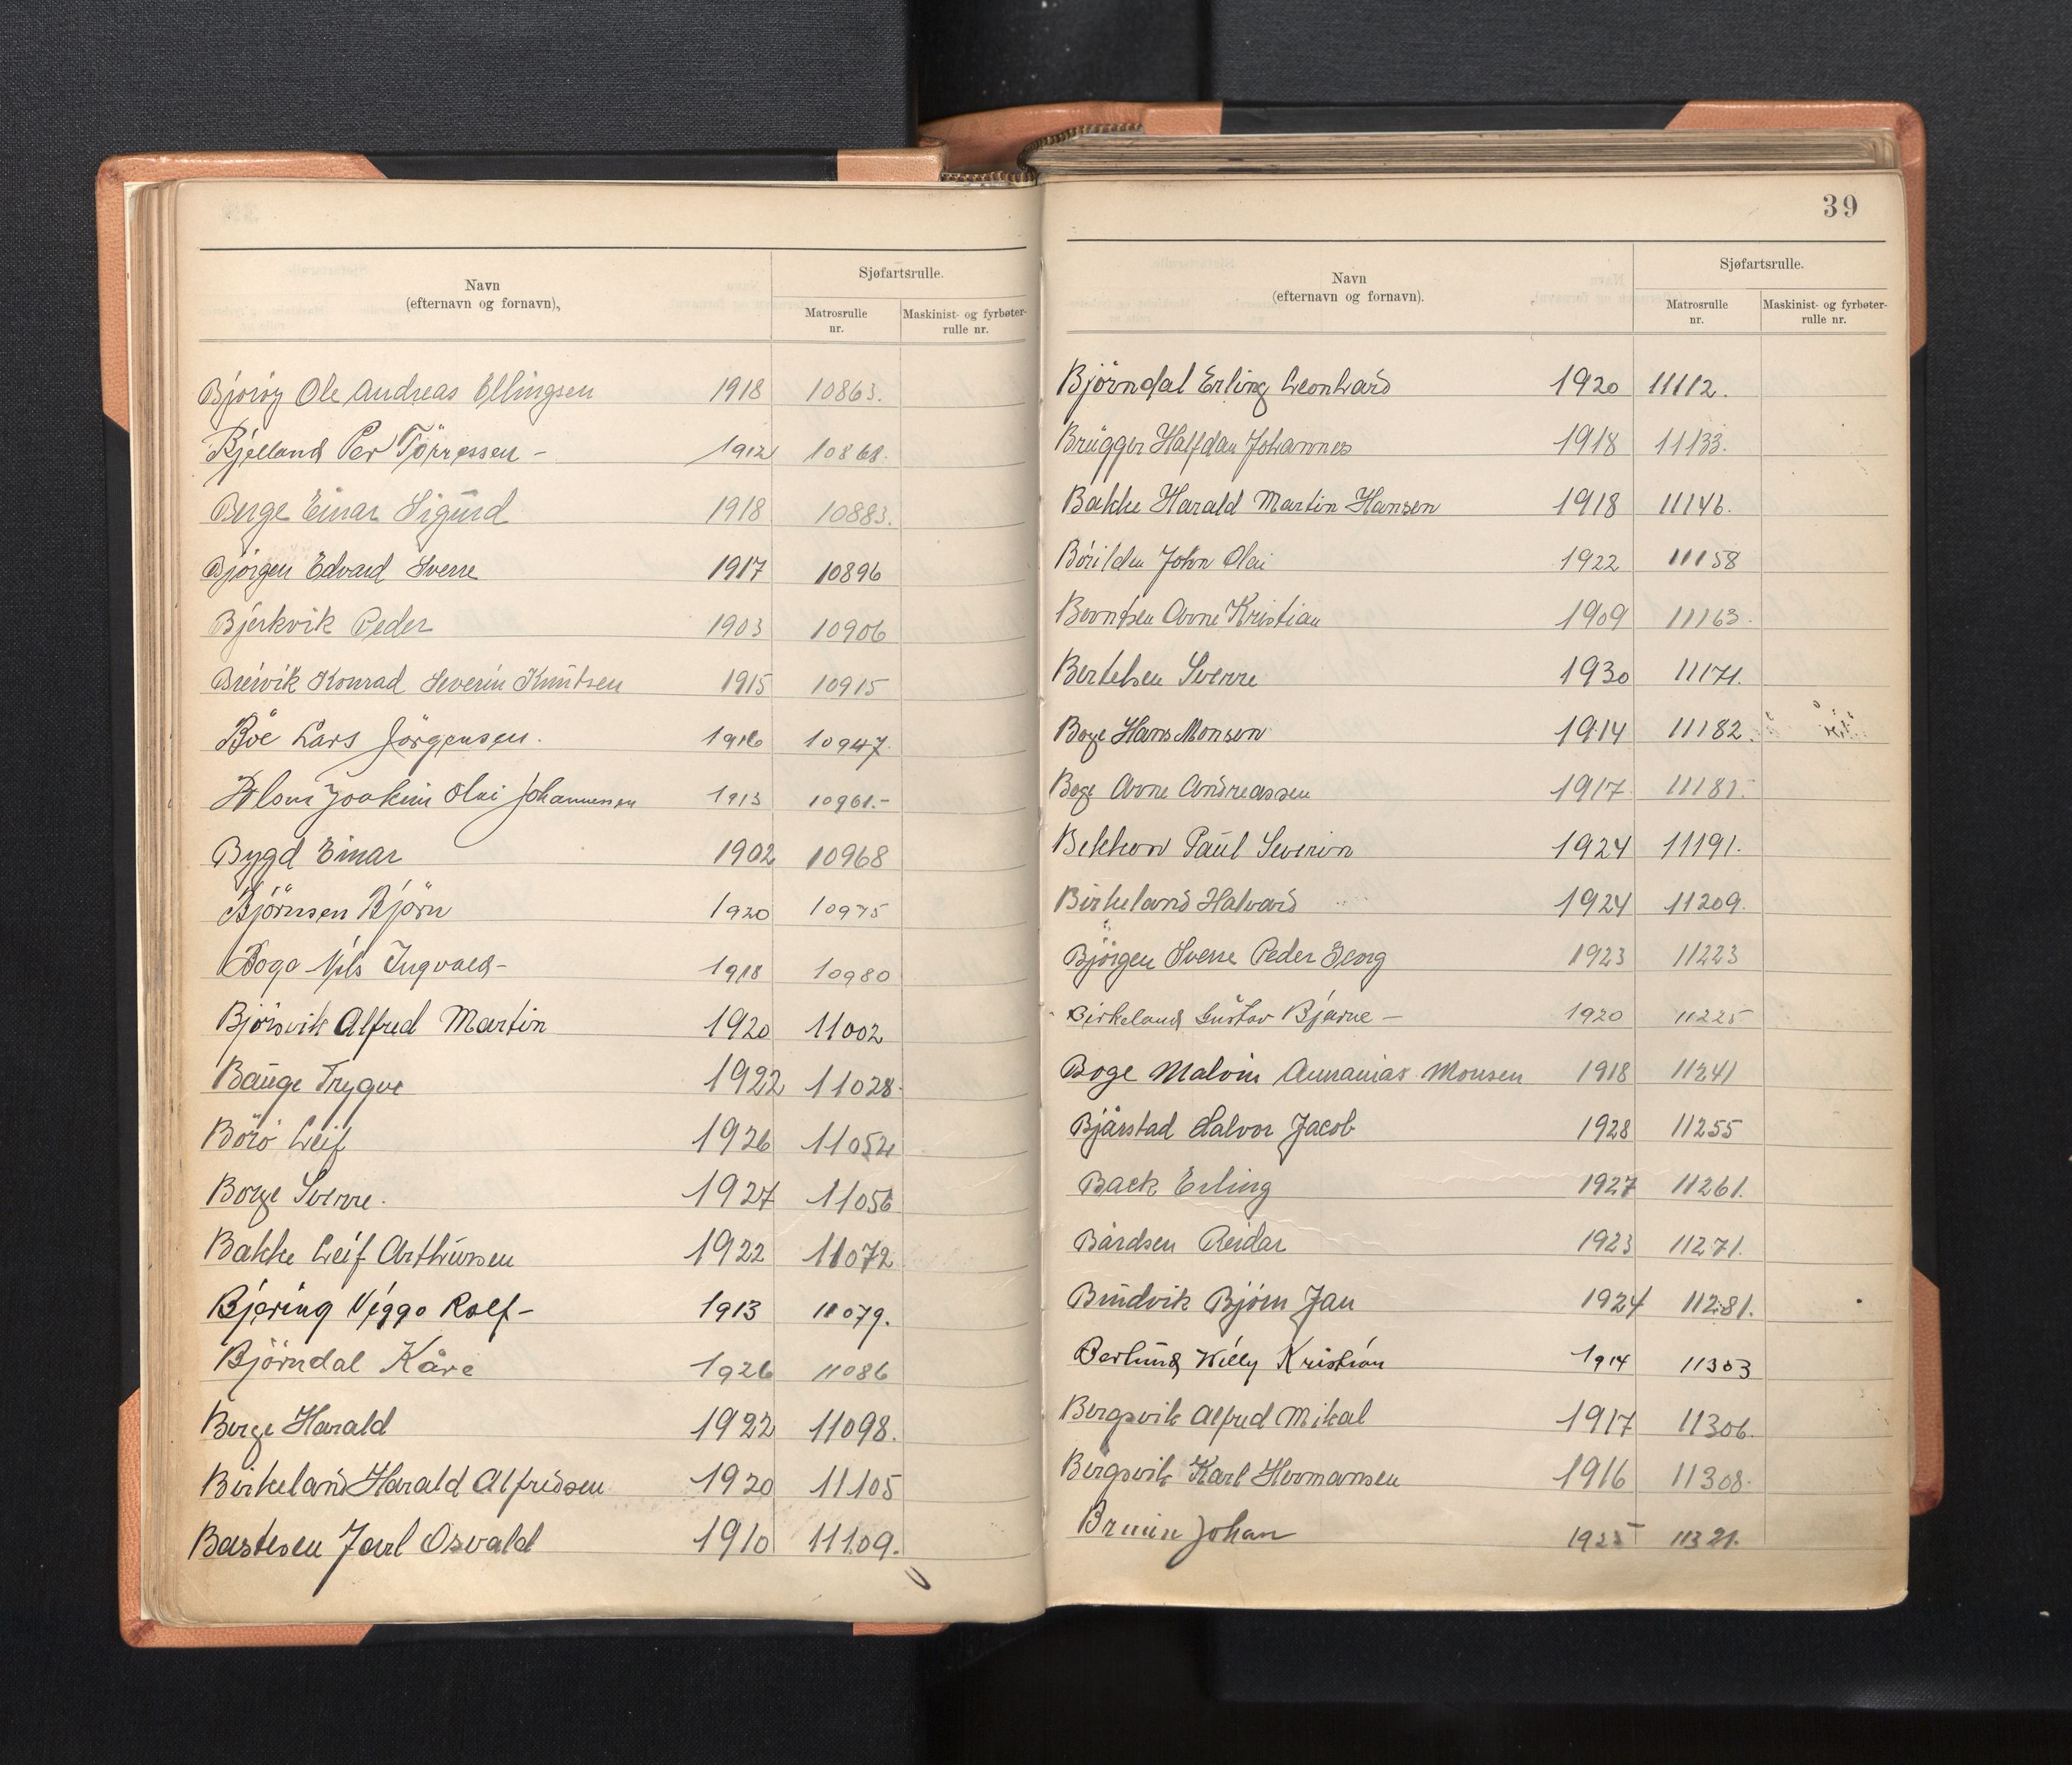 Navn
(efternavn og fornavn),
Sjøfartsrulle.
Matrosrulle
nr.
Maskinist- og fyrbøter-
rulle nr.
Bjorøy Ole Andreas Ellingsen 1918 10863.
Bjelland Per Törressen - 1912 10868.
Berge Einar Sigurd 1918 10883.
Bjørgen Edvard Sverre 1917 10896
Bjerkvik Peder 1903 10906
Breivik Konrad Severin Knutsen 1915 10915
Böe Lars Jörgensen. 1916 10947.
Blom Joakim Olai Johannessen 1913 10961.-
Bygd Einar 1902 10968
Björnsen Björn 1920 10975
Boga Nils Ingvald - 1918 10980
Bjørsvik Alfred Martin 1920 11002
Bauge Trygve 1922 11028.
Börö Leif 1926 11052
Borge Sverre. 1927 11056
Bakke Leif Arthursen 1922 11072
Bjering Viggo Rolf - 1913 11079.
Björndal Kåre 1926 11086
Berge Harald 1922 11098.
Birkeland Harald Alfredsen 1920 11105
Bastesen Jarl Osvald 1910 11109.
39
Navn
(efternavn og fornavn).
Sjøfartsrulle.
Matrosrulle
nr.
Maskinist- og fyrbøter-
rulle nr.
Björndal Erling Leonhard 1920 11112.
Brügger Halfdan Johannes 1918 11133.
Bakke Harald Martin Hansen 1918 11146.
John Olai 1922 11158
Berntsen Arne Kristian 1909 11163.
Bertelsen Sverre 1930 11171.
Boge Hans Monsen 1914 11182.
Boge Arne Andreassen 1917 11181.
Bekken Paul Severin 1924 11191.
Birkeland Halvard 1924 11209.
Björgen Sverre Peder Georg 1923 11223
Birkeland Gustav Bjarne - 1920 11225
Boge Malvin Annanias Monsen 1918 11241
Bjårstad Halvor Jacob 1928 11255
Back Erling 1927 11261.
Bårdsen Reidar 1923 11271.
Bindvik Bjørn Jan 1924 11281.
Berlund Willy Kristian 1914 11303
Bergsvik Alfred Mikal 1917 11306.
Bergsvik Karl Hermansen 1916 11308.
Bruun Johan 1925 11321.